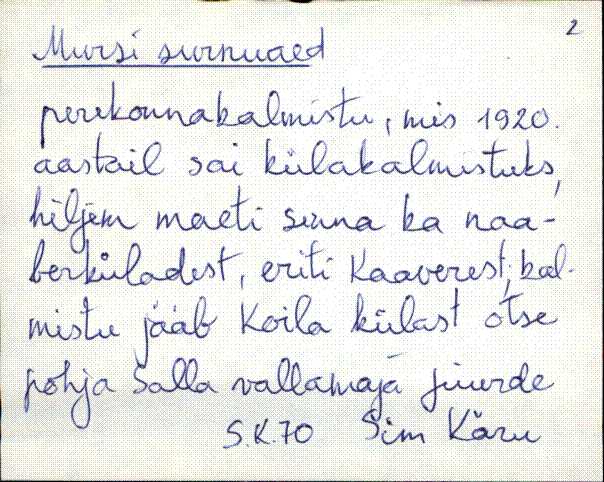 2
Mursi surnuaed
perekonnakalmistu, mis 1920.
aastail sai külakalmistuks,
hiljem maeti sinna ka naa-
berküladest, eriti Kaaverest; kal-
mistu jääb Koila külast otse
põhja Salla vallamaja juurde
S.K.70 Sim Käru